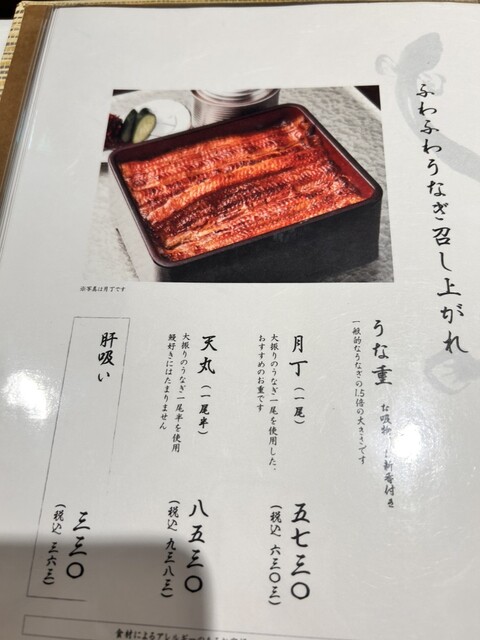 ふわふわうなぎ召し上がれ
※写真は月丁です
うな重 お吸物、お新香付き
一般的なうなぎの1.5倍の大きさです
月丁(一尾)
大振りのうなぎ一尾を使用した、
おすすめのお重です
五七三〇
(税込 六三〇三)
天丸(一尾半)
大振りのうなぎ一尾半を使用
鰻好きにはたまりません
八五三〇
(税込 九三八三)
肝吸い
三三〇
(税込 三六三)
食材によるアレルギーの